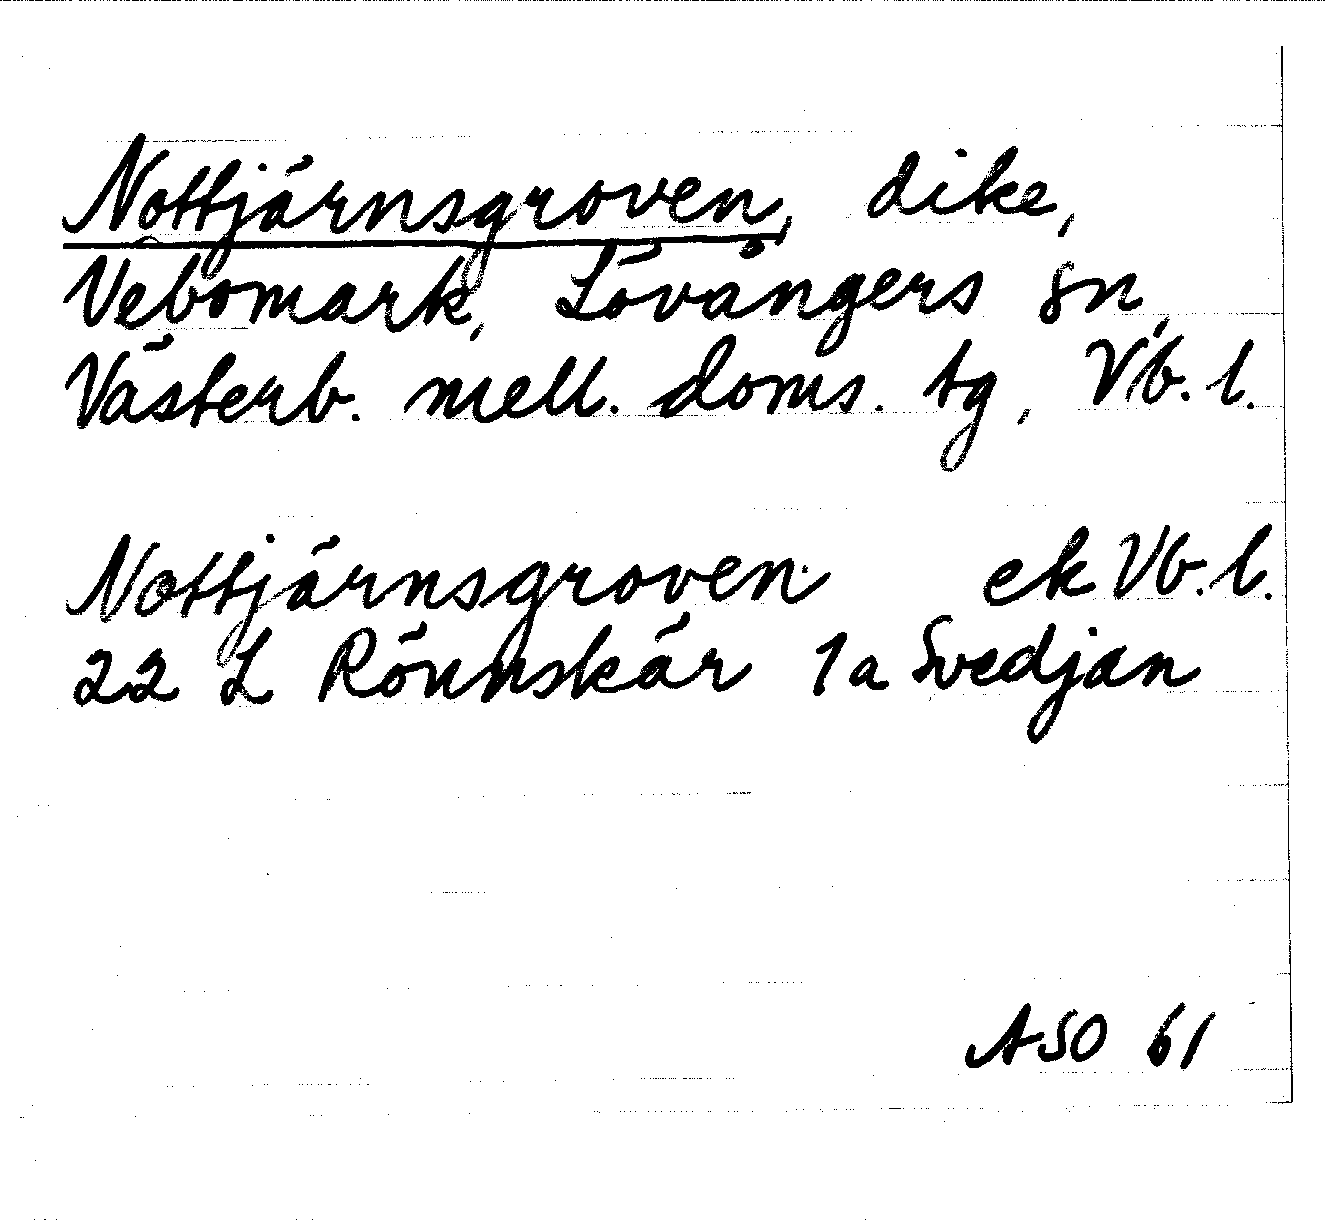 Nottjärnsgroven, dike,
Vebomark, Lövångers sn,
Västerb. mell. doms. tg, Vb. l.
Nottjärnsgroven ek Vb. l.
22 L Rönnskär 1a Svedjan
ASO 61